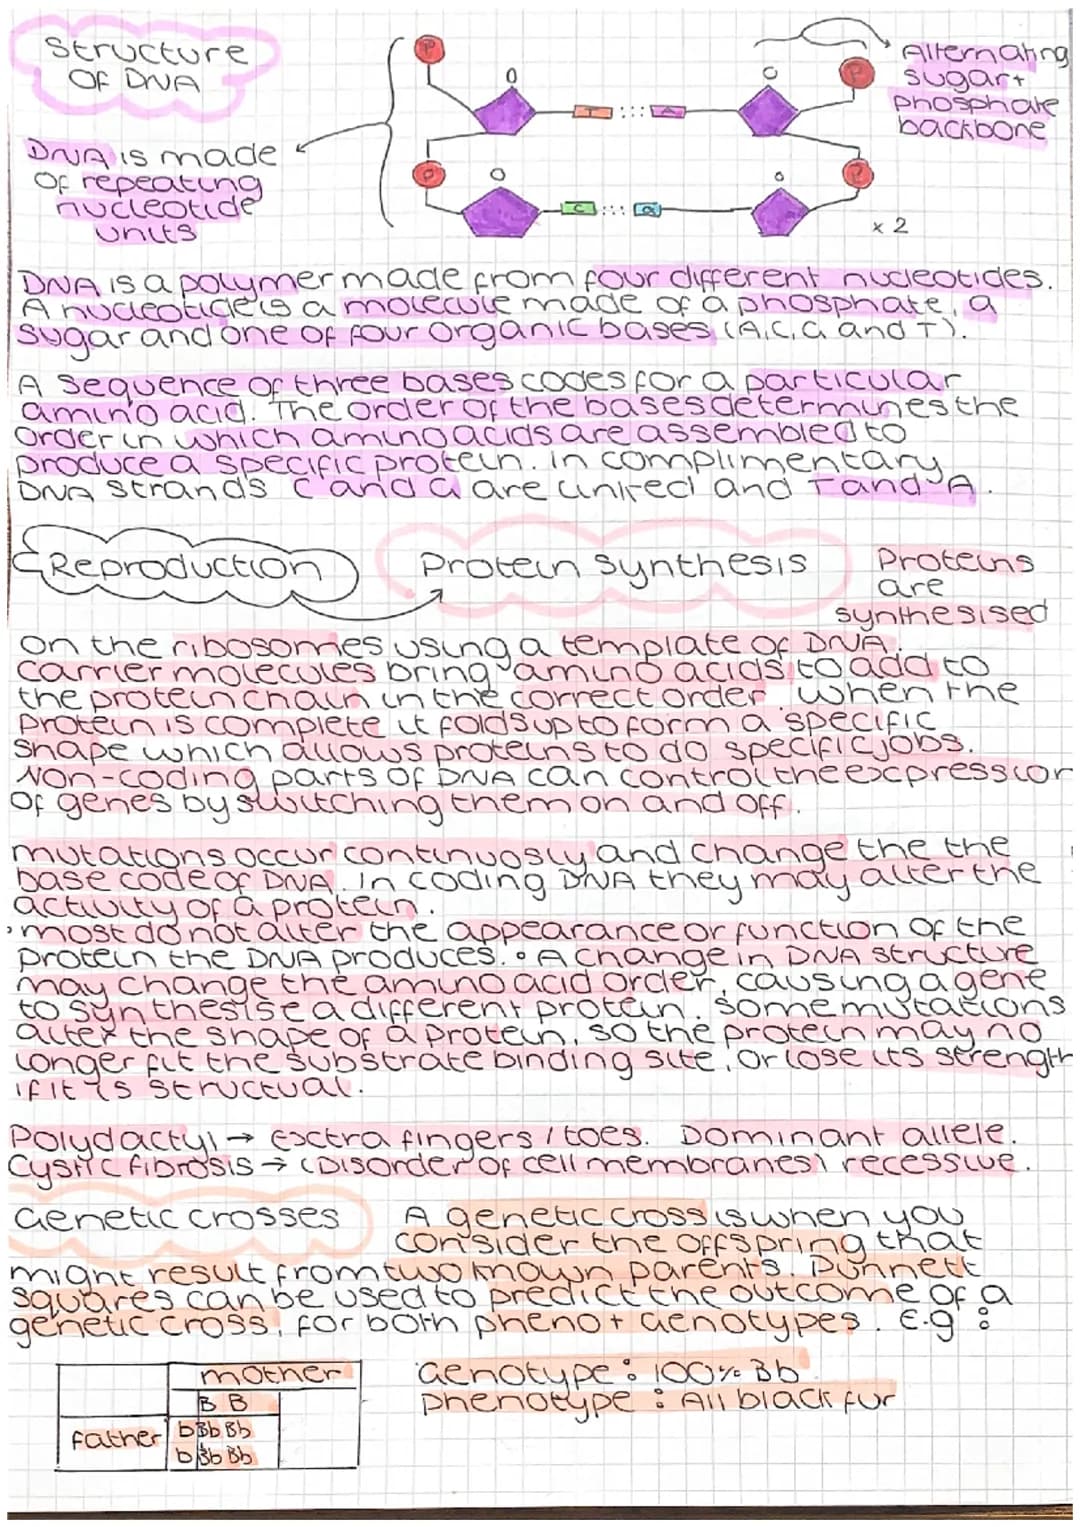 Structure
OF DNA
P
O
T
A
O
P
Alternating
sugar+
phosphate
backbone
DNA is made
OF repeating
nucleotide
units
P
O
C
G
O
P
x 2
DNA is a polymer made from four different nucleotides.
A nucleotide is a molecule made of a phosphate, a
sugar and one of four organic bases (A,C,G and T).
A sequence of three bases codes for a particular
amino acid. The order of the bases determines the
order in which amino acids are assembled to
produce a specific protein. in complimentary
DNA strands C and G are linked and T and A.
Reproduction
Protein synthesis
Proteins
are
synthesised
on the ribosomes using a template of DNA.
carrier molecules bring amino acids to add to
the protein chain in the correct order. when the
protein is complete it folds up to form a specific
shape which allows proteins to do specific jobs.
Non-coding parts of DNA can control the expression
of genes by switching them on and off.
mutations occur continuosly and change the the
base code of DNA. in coding DNA they may alter the
activity of a protein.
• most do not alter the appearance or function of the
protein the DNA produces. • A change in DNA structure
may change the amino acid order, causing a gene
to synthesise a different protein. Some mutations
alter the shape of a protein, so the protein may no
longer fit the substrate binding site, or lose its strength
if it is structual.
Polydactyl → Extra fingers / toes. Dominant allele.
Cystic fibrosis → (Disorder of cell membranes) recessive.
Genetic crosses
A genetic cross is when you
consider the offspring that
might result from two known parents. Punnett
squares can be used to predict the outcome of a
genetic cross, for both pheno + Genotypes. E.g :
mother
B B
father
b Bb Bb
b Bb Bb
Genotype : 100% Bb
Phenotype : All black fur